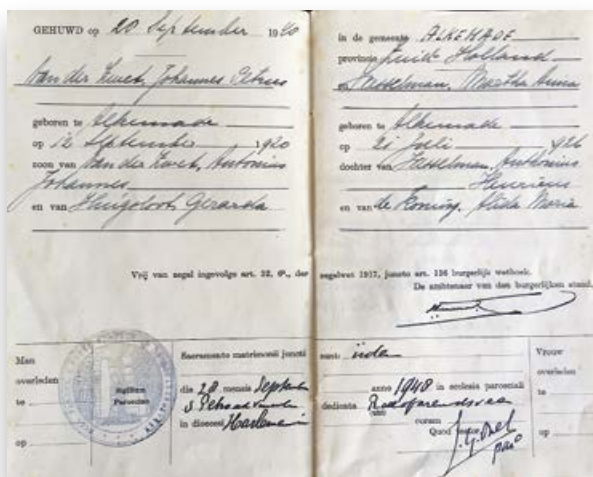 GEHUWD op 20 September 1940
van der Zwet, Johannes Petrus
geboren te Alkemade
op 12 September 1920
zoon van van der Zwet, Antonius
Johannes
en van Gerarda
in de gemeente ALKEMADE
provincie Zuid Holland
en Hesselman, Martha Anna
geboren te Alkemade
op 21 Juli 1926
dochter van Hesselman, Anthonius
Henricus
en van de Koning, Alida Maria
Vrij van zegel ingevolge art. 32, 6°., der zegelwet 1917, juncto art. 136 burgerlijk wetboek.
De ambtenaar van den burgerlijken stand,
Man
overleden
te
op
Sigillum
Parociae
Sacramento matrimonii juncti sunt
die 28 mensis September anno 1948 in ecclesia paroeciali
S. Petrus dedicata
in dioecesi Haarlem coram
Quod testor,
Vrouw
overleden
te
op